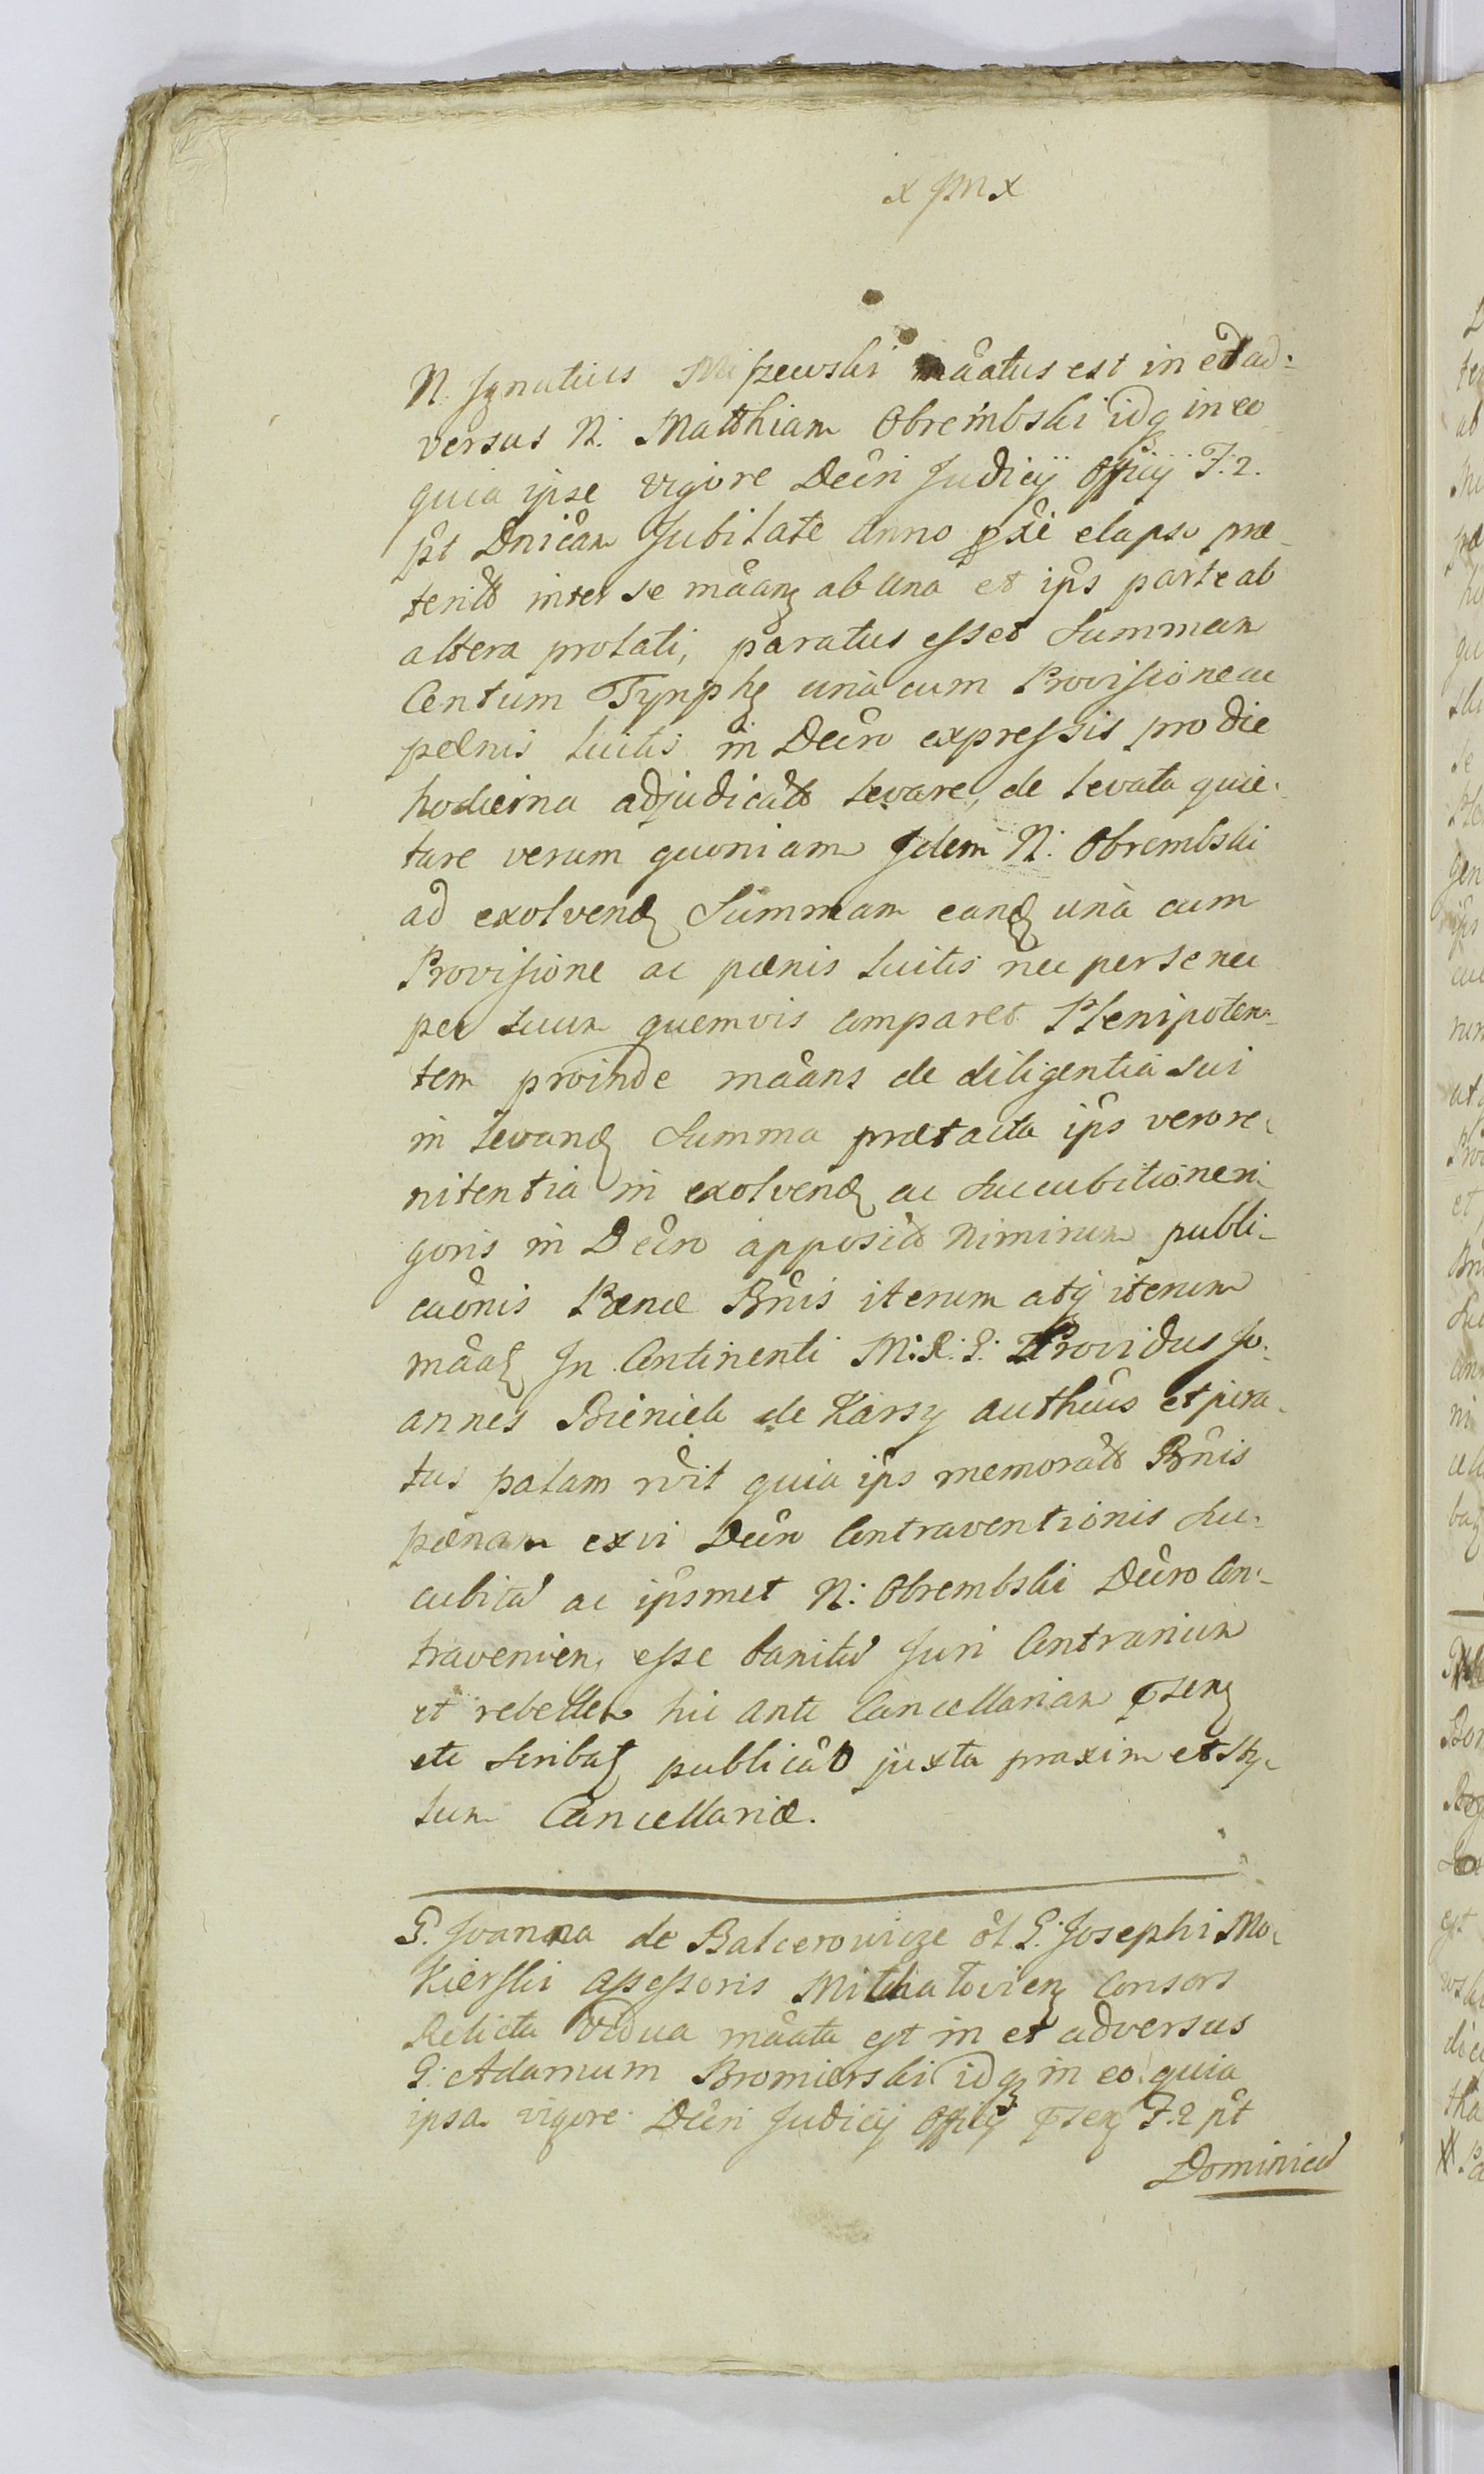 x JM x
N. Ignatius Miszewski mãatus est in et ad:
versus N: Matthiam Obrembski idq in eo
quia ipse vigore Decri Judicÿ Officÿ F. 2.
pt Dnicam Jubilate Anno pxi elapso præ-
terito inter se mãan ab una et ips parte ab
altera prolati, paratus esset Summam
Centum Tynph una cum Provisione ac
pænis luitis in Decro expressis pro die
hodierna adjudicato levare, de levata quie-
tare verum quoniam Idem N: Obrembski
ad exolvend Summam eand unà cum
Provisione ac pænis luitis nec per se nec
per suum quemvis comparet Plenipoten-
tem proinde mãans de diligentia sui
in levand Summa prætacta ips vero re-
nitentia in exolvend ac Succubitione ri-
goris in Decro apposito nimirum publi-
caõnis Pænæ Bnis iterum atq iterum
mãa In Continenti M: R. P: Providus Jo-
annes Bieniek de Karsy authcus et jura-
tus palam rdit quia ips memorato Bnis
pænam ex vi Decri Contraventionis Suc-
cubitu ac ipsmet N: Obrembski Decro Con-
travenien esse banitu Juri Contrarium
et rebellem hic ante Cancellariam psen
etc Scriba publicado juxta praxim et sty-
lum Cancellariæ.
G. Joanna de Balcerowicze ol G: Josephi Mo-
kierski Assessoris Mitchatovien Consors
Relicta Vidua mãata est in et adversus
G: Adamum Bromierski idq in eo quia
ipsa vigore Decri Judicÿ Officÿ psen F. 2 pt
Dominicu